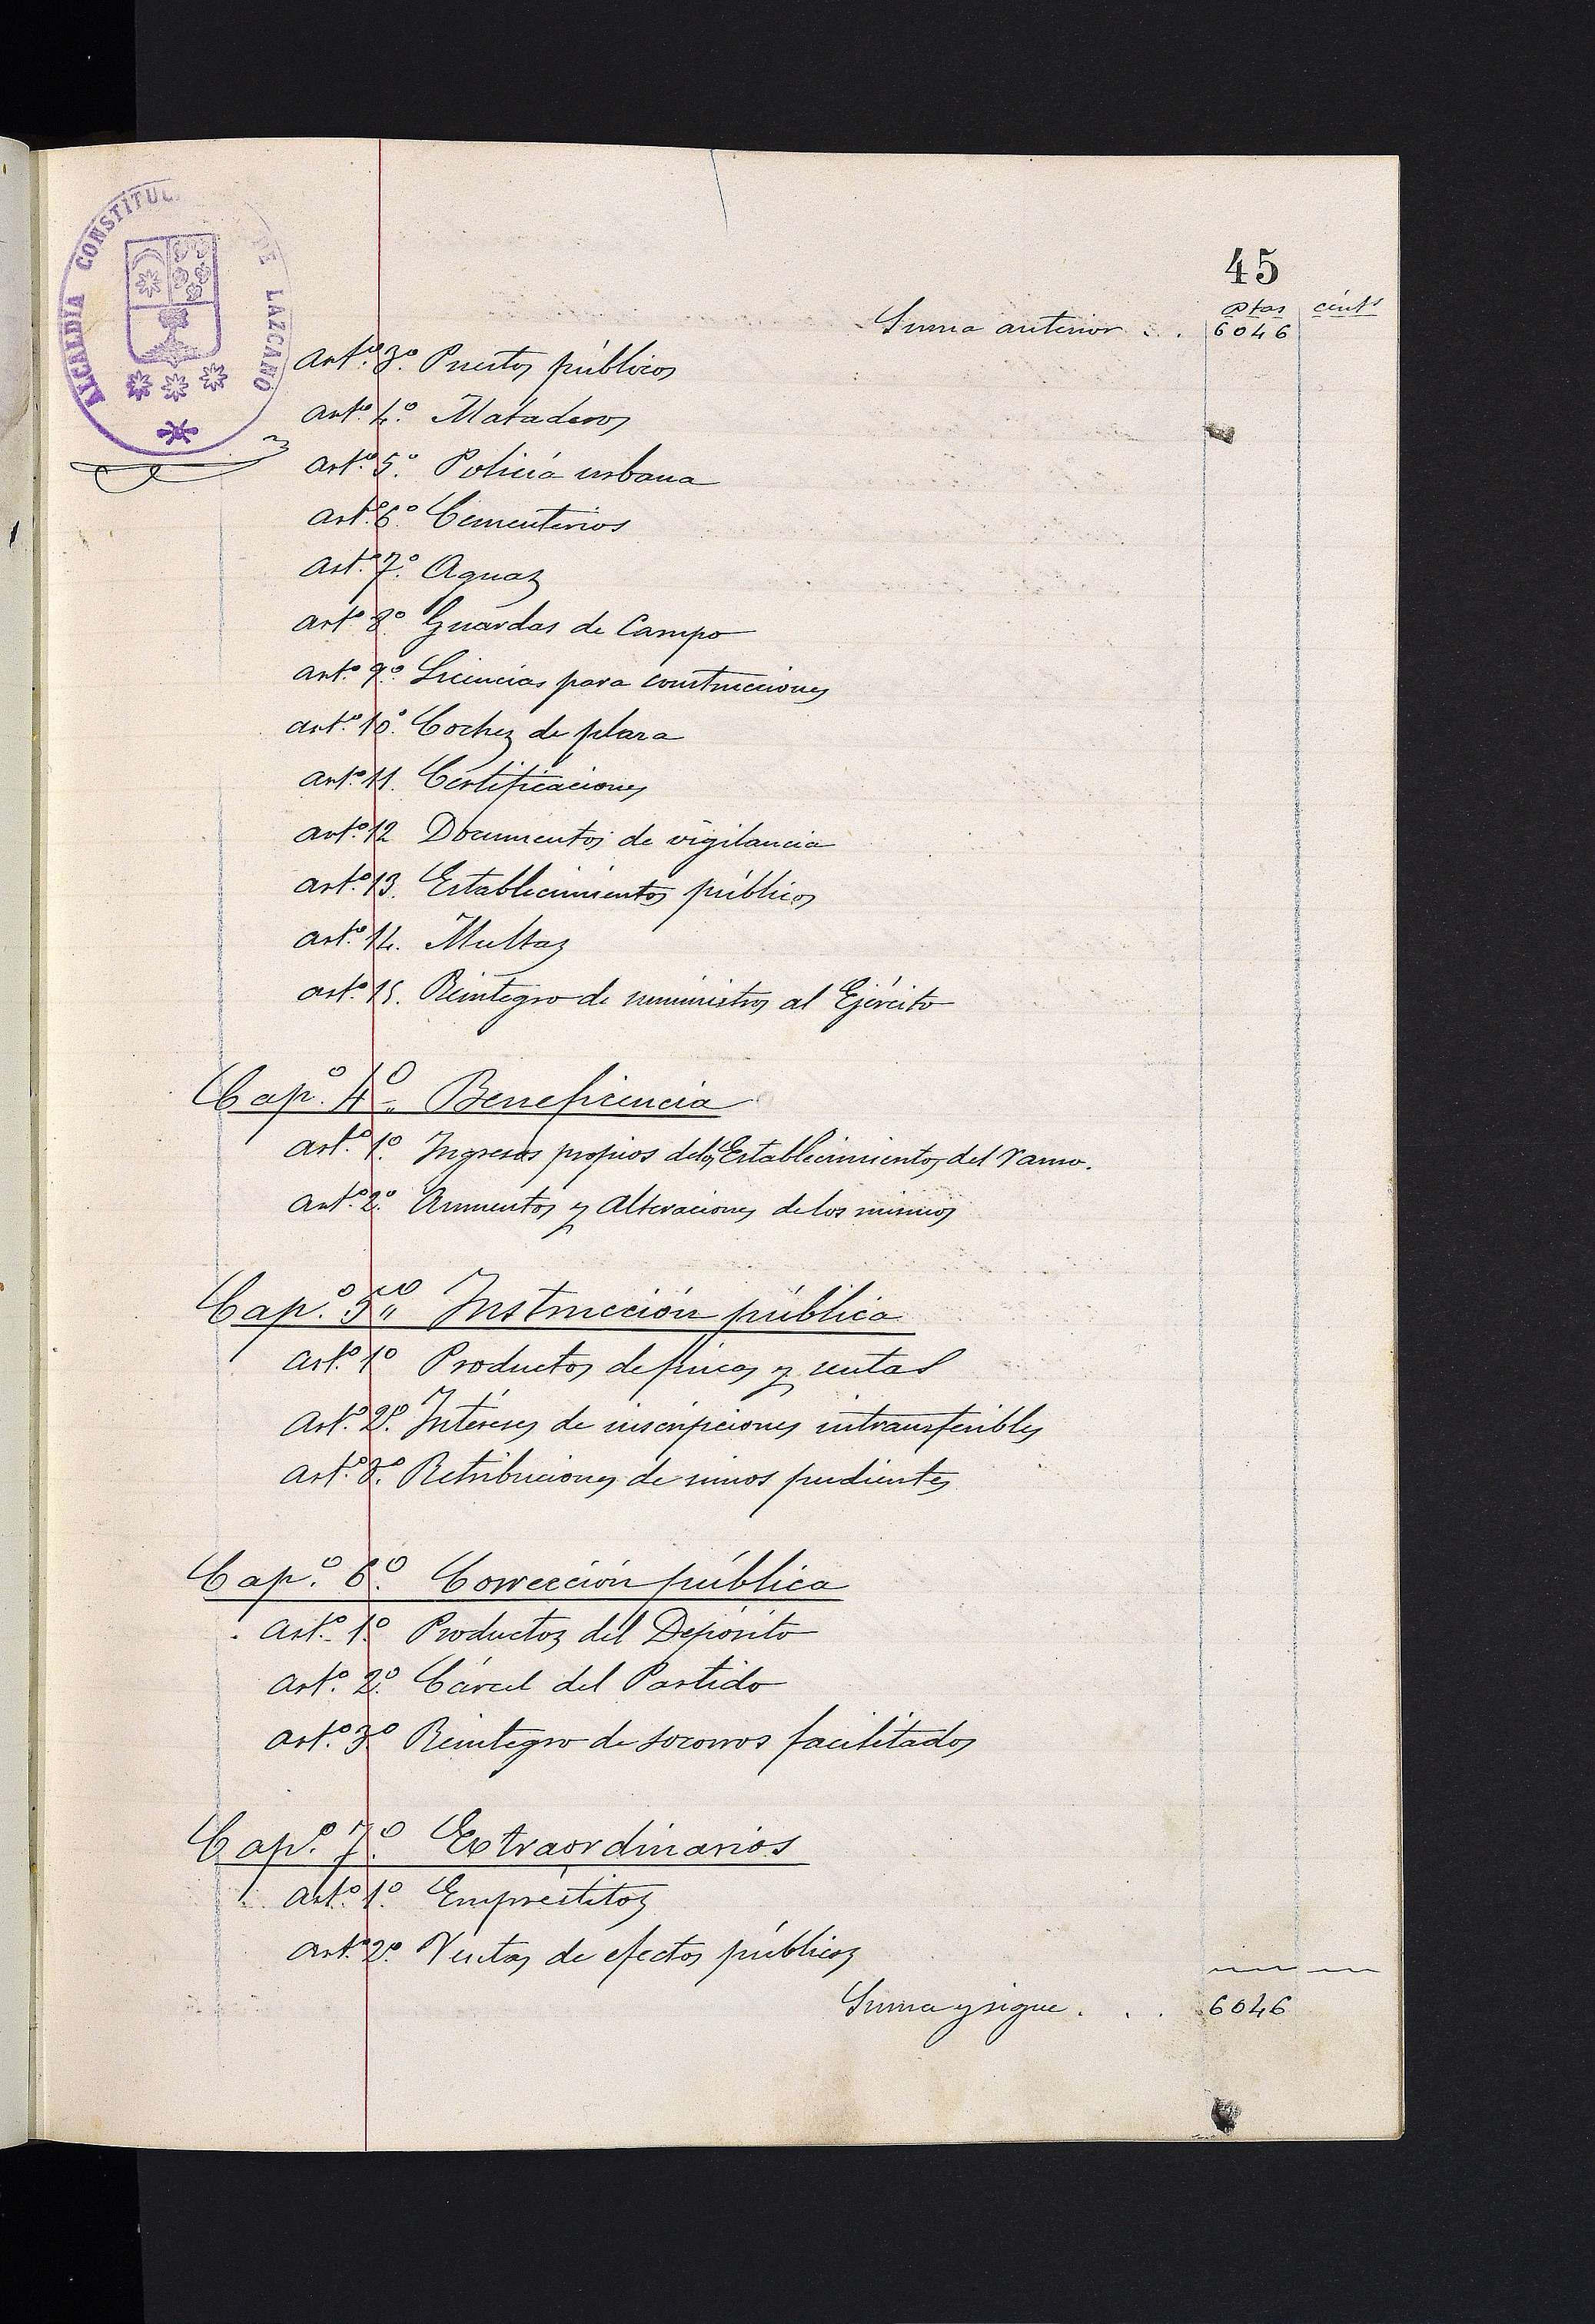 ALCALDIA CONSTITUC DE LAZCANO
45
ptas cénts
Suma anterior . . . 6046
Art.º 3.º Puestos públicos
Art.º 4.º Mataderos
Art.º 5.º Policía urbana
Art.º 6.º Cementerios
Art.º 7.º Aguas
Art.º 8.º Guardas de Campo
Art.º 9.º Licencias para construcciones
Art.º 10.º Coches de plaza
Art.º 11. Certificaciones
Art.º 12 Documentos de vigilancia
Art.º 13. Establecimientos públicos
Art.º 14. Multas
Art.º 15. Reintegro de suministros al Ejército
Cap.º 4.º Beneficencia
Art.º 1.º Ingresos propios de los Establecimientos del ramo.
Art.º 2.º Aumentos y alteraciones de los mismos
Cap.º 5.º Instrucción pública
Art.º 1.º Productos de fincas y rentas
Art.º 2.º Intereses de inscripciones intransferibles
Art.º 3.º Retribuciones de niños pudientes
Cap.º 6.º Corrección pública
Art.º 1.º Productos del Depósito
Art.º 2.º Cárcel del Partido
Art.º 3.º Reintegro de socorros facilitados
Cap.º 7.º Extraordinarios
Art.º 1.º Empréstitos
Art.º 2.º Ventas de efectos públicos
Suma y sigue . . . 6046